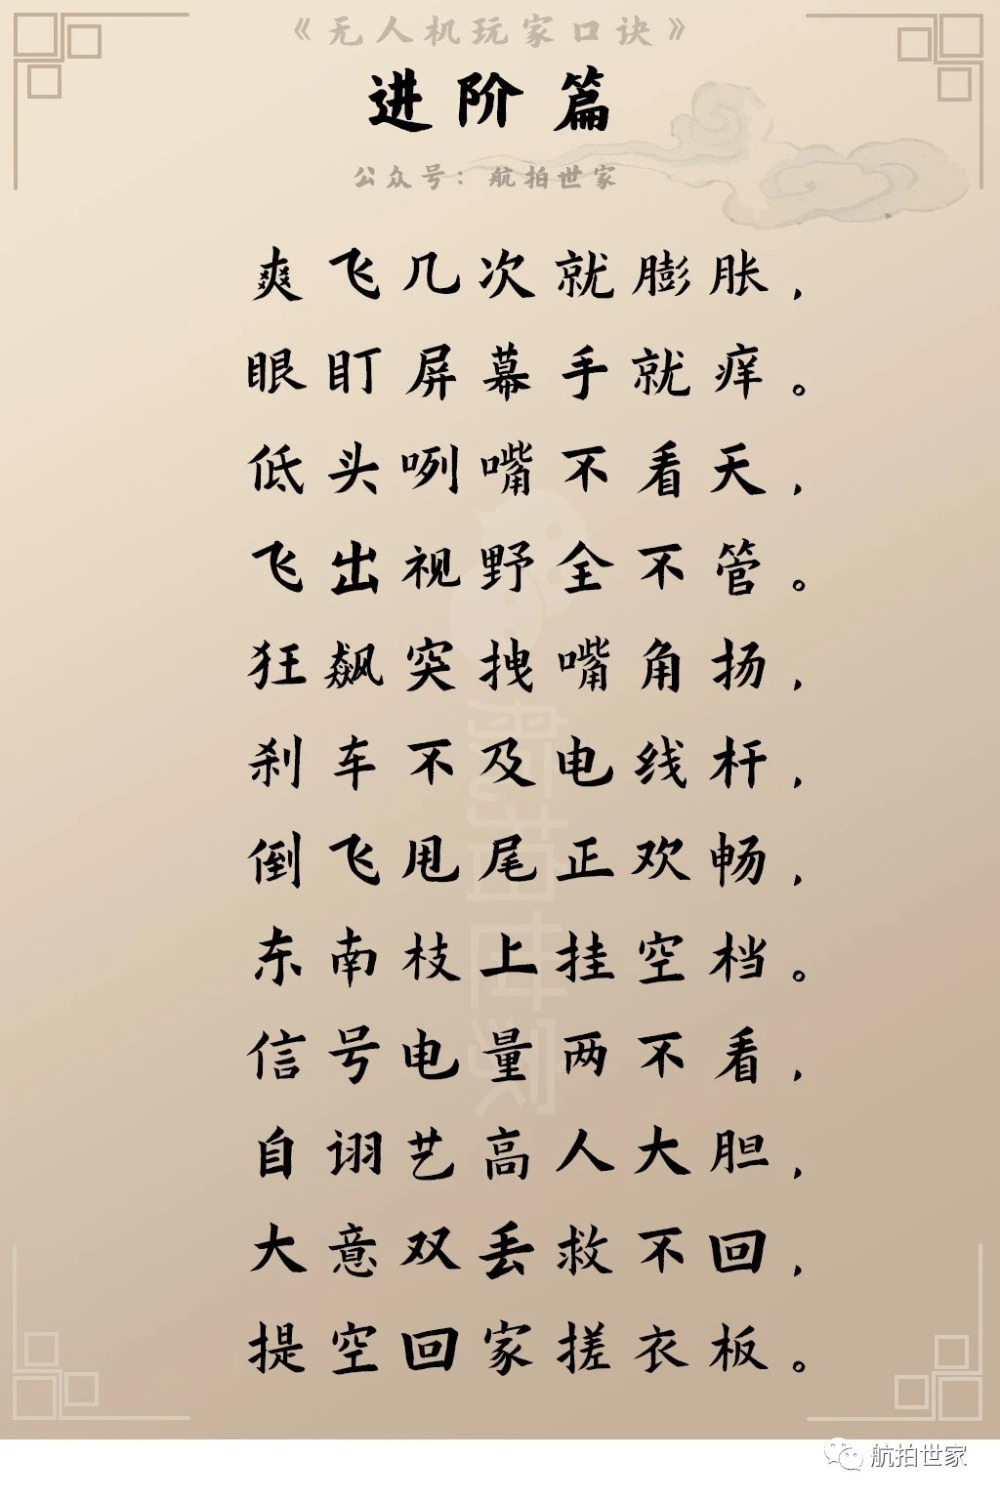 《无人机玩家口诀》
进阶篇
公众号：航拍世家
爽飞几次就膨胀，
眼盯屏幕手就痒。
低头咧嘴不看天，
飞出视野全不管。
狂飙突拽嘴角扬，
刹车不及电线杆，
倒飞甩尾正欢畅，
东南枝上挂空档。
信号电量两不看，
自诩艺高人大胆，
大意双丢救不回，
提空回家搓衣板。
航拍世家
航拍世家